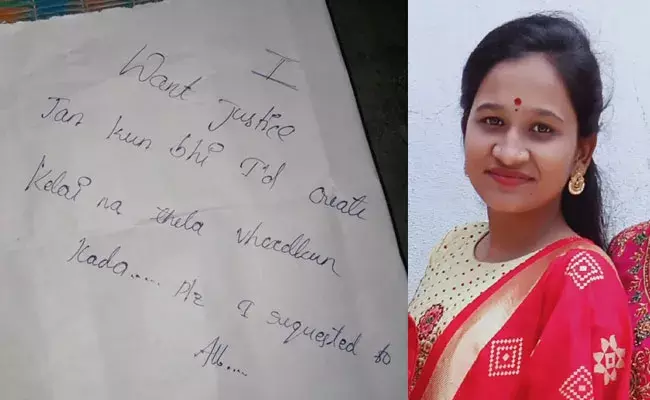 I
Want justice
Jan kun bhi I'd create
Kelai na thela
Kada.... plz I suquested to
All....